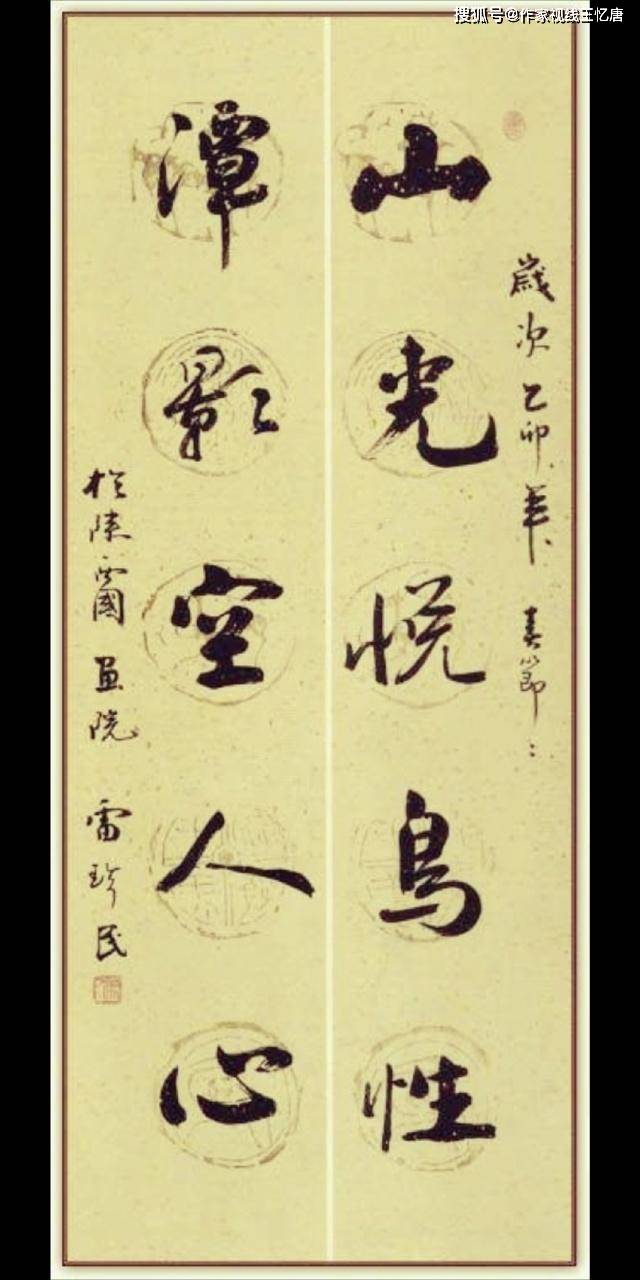 搜狐号@作家视线王忆唐
歲次己卯年 春節
山光悦鳥性
潭影空人心
於陕西國画院 雷珍民